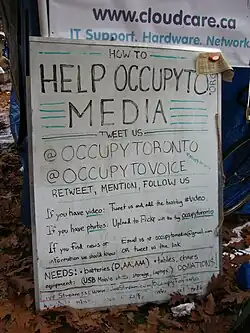 www.cloudcare.ca
IT Support. Hardware. Networks
HOW TO
HELP OCCUPYTO
.ORG
MEDIA
TWEET US
@OCCUPYTORONTO
@OCCUPYTOVOICE
RETWEET, MENTION, FOLLOW US
If you have video: Tweet us and add the hashtag #video
If you have photos: Upload to Flickr with the tag occupytoronto
If you find news or
information we should know
Email us at occupytomedia@gmail.com
or tweet us the link
NEEDS: • batteries (D, AA, AM) • tables, chairs
equipment: USB Mobile sticks, storage, laptops DONATIONS